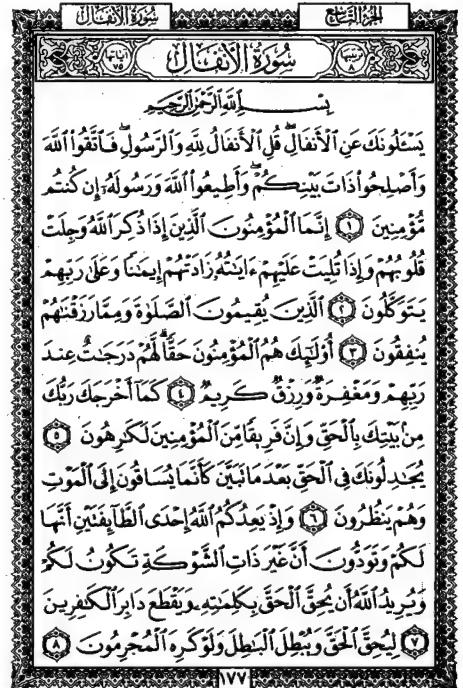 الجزء التاسع سورة الأنفال
ترتيبها ٨ سورة الأنفال آياتها ٧٥
بِسْمِ اللَّهِ الرَّحْمَٰنِ الرَّحِيمِ
يَسْـَٔلُونَكَ عَنِ الْأَنفَالِ ۖ قُلِ الْأَنفَالُ لِلَّهِ وَالرَّسُولِ ۖ فَاتَّقُوا۟ اللَّهَ
وَأَصْلِحُوا۟ ذَاتَ بَيْنِكُمْ ۖ وَأَطِيعُوا۟ اللَّهَ وَرَسُولَهُۥٓ إِن كُنتُم
مُّؤْمِنِينَ ١ إِنَّمَا الْمُؤْمِنُونَ الَّذِينَ إِذَا ذُكِرَ اللَّهُ وَجِلَتْ
قُلُوبُهُمْ وَإِذَا تُلِيَتْ عَلَيْهِمْ ءَايَٰتُهُۥ زَادَتْهُمْ إِيمَٰنًا وَعَلَىٰ رَبِّهِمْ
يَتَوَكَّلُونَ ٢ الَّذِينَ يُقِيمُونَ الصَّلَوٰةَ وَمِمَّا رَزَقْنَٰهُمْ
يُنفِقُونَ ٣ أُو۟لَٰٓئِكَ هُمُ الْمُؤْمِنُونَ حَقًّا ۚ لَّهُمْ دَرَجَٰتٌ عِندَ
رَبِّهِمْ وَمَغْفِرَةٌ وَرِزْقٌ كَرِيمٌ ٤ كَمَآ أَخْرَجَكَ رَبُّكَ
مِنۢ بَيْتِكَ بِالْحَقِّ وَإِنَّ فَرِيقًا مِّنَ الْمُؤْمِنِينَ لَكَٰرِهُونَ ٥
يُجَٰدِلُونَكَ فِي الْحَقِّ بَعْدَ مَا تَبَيَّنَ كَأَنَّمَا يُسَاقُونَ إِلَى الْمَوْتِ
وَهُمْ يَنظُرُونَ ٦ وَإِذْ يَعِدُكُمُ اللَّهُ إِحْدَى الطَّآئِفَتَيْنِ أَنَّهَا
لَكُمْ وَتَوَدُّونَ أَنَّ غَيْرَ ذَاتِ الشَّوْكَةِ تَكُونُ لَكُمْ
وَيُرِيدُ اللَّهُ أَن يُحِقَّ الْحَقَّ بِكَلِمَٰتِهِۦ وَيَقْطَعَ دَابِرَ الْكَٰفِرِينَ
٧ لِيُحِقَّ الْحَقَّ وَيُبْطِلَ الْبَٰطِلَ وَلَوْ كَرِهَ الْمُجْرِمُونَ ٨
١٧٧